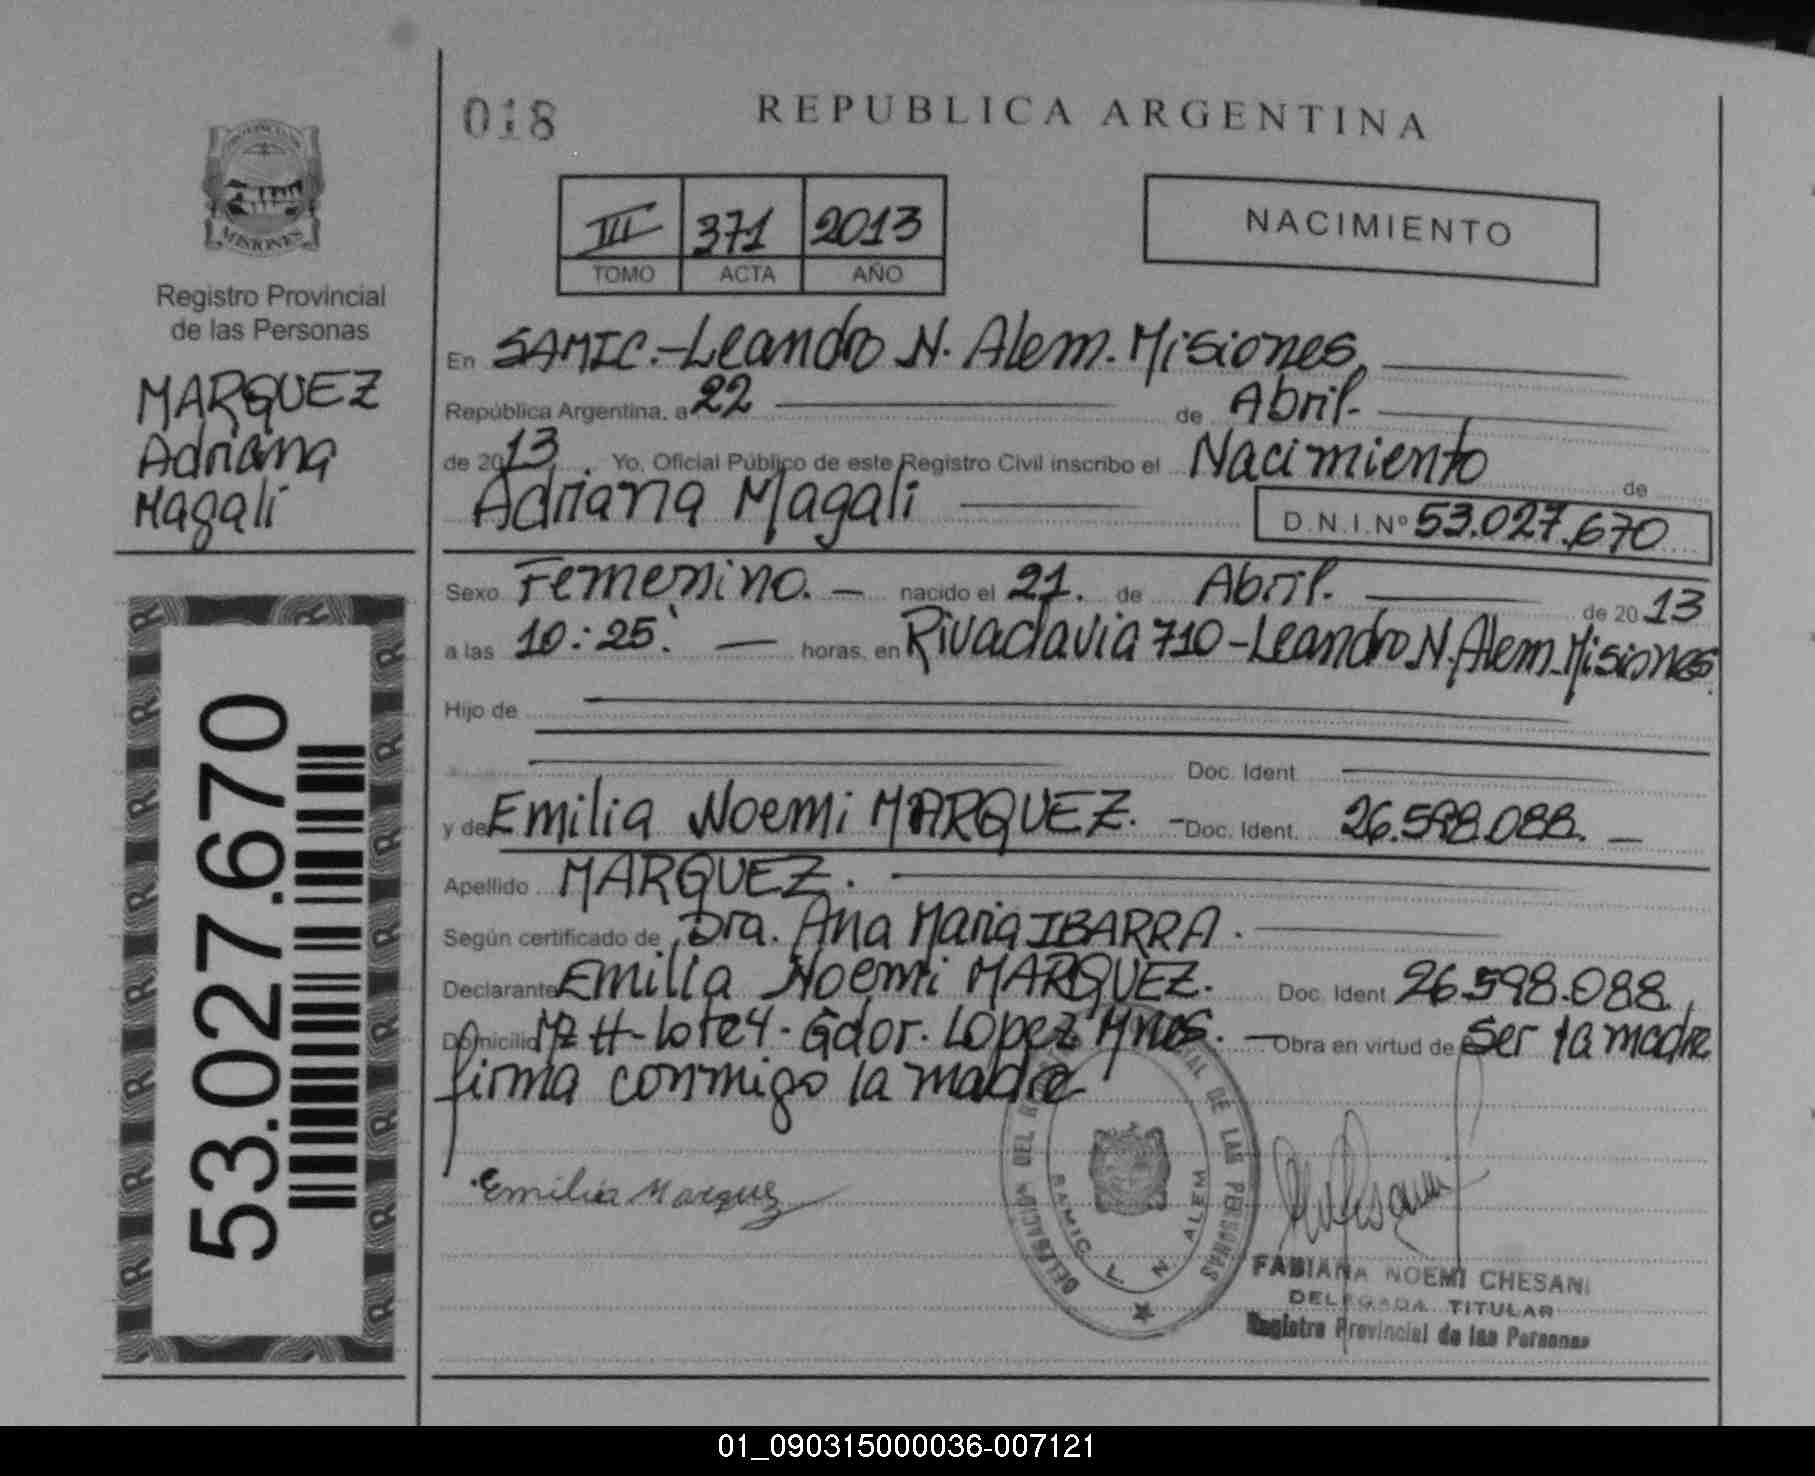 018
REPUBLICA ARGENTINA
MISIONES
Registro Provincial
de las Personas
MARQUEZ
Adriana
Magali
53.027.670
III 371 2013
TOMO ACTA AÑO
NACIMIENTO
En SAMIC.-Leandro N. Alem. Misiones,
República Argentina, a 22 de Abril.
de 2013. Yo, Oficial Público de este Registro Civil inscribo el Nacimiento de
Adriana Magali D.N.I.Nº 53.027.670
Sexo Femenino. - nacido el 21. de Abril. de 2013
a las 10:25. - horas, en Rivadavia 710-Leandro N. Alem. Misiones.
Hijo de
Doc. Ident.
y de Emilia Noemi MARQUEZ. - Doc. Ident. 26.598.088. -
Apellido MARQUEZ.
Según certificado de Dra. Ana Maria IBARRA.
Declarante Emilia Noemi MARQUEZ. Doc. Ident. 26.598.088.
Domicilio Mz H-Lote 4. Gdor. Lopez Mnes. - Obra en virtud de Ser la madre
firma conmigo la madre
Emilia Marquez
DELEGACION DEL DE LAS PERSONAS
SAMIC L. N. ALEM
FABIANA NOEMI CHESANI
DELEGADA TITULAR
Registro Provincial de las Personas
01_090315000036-007121